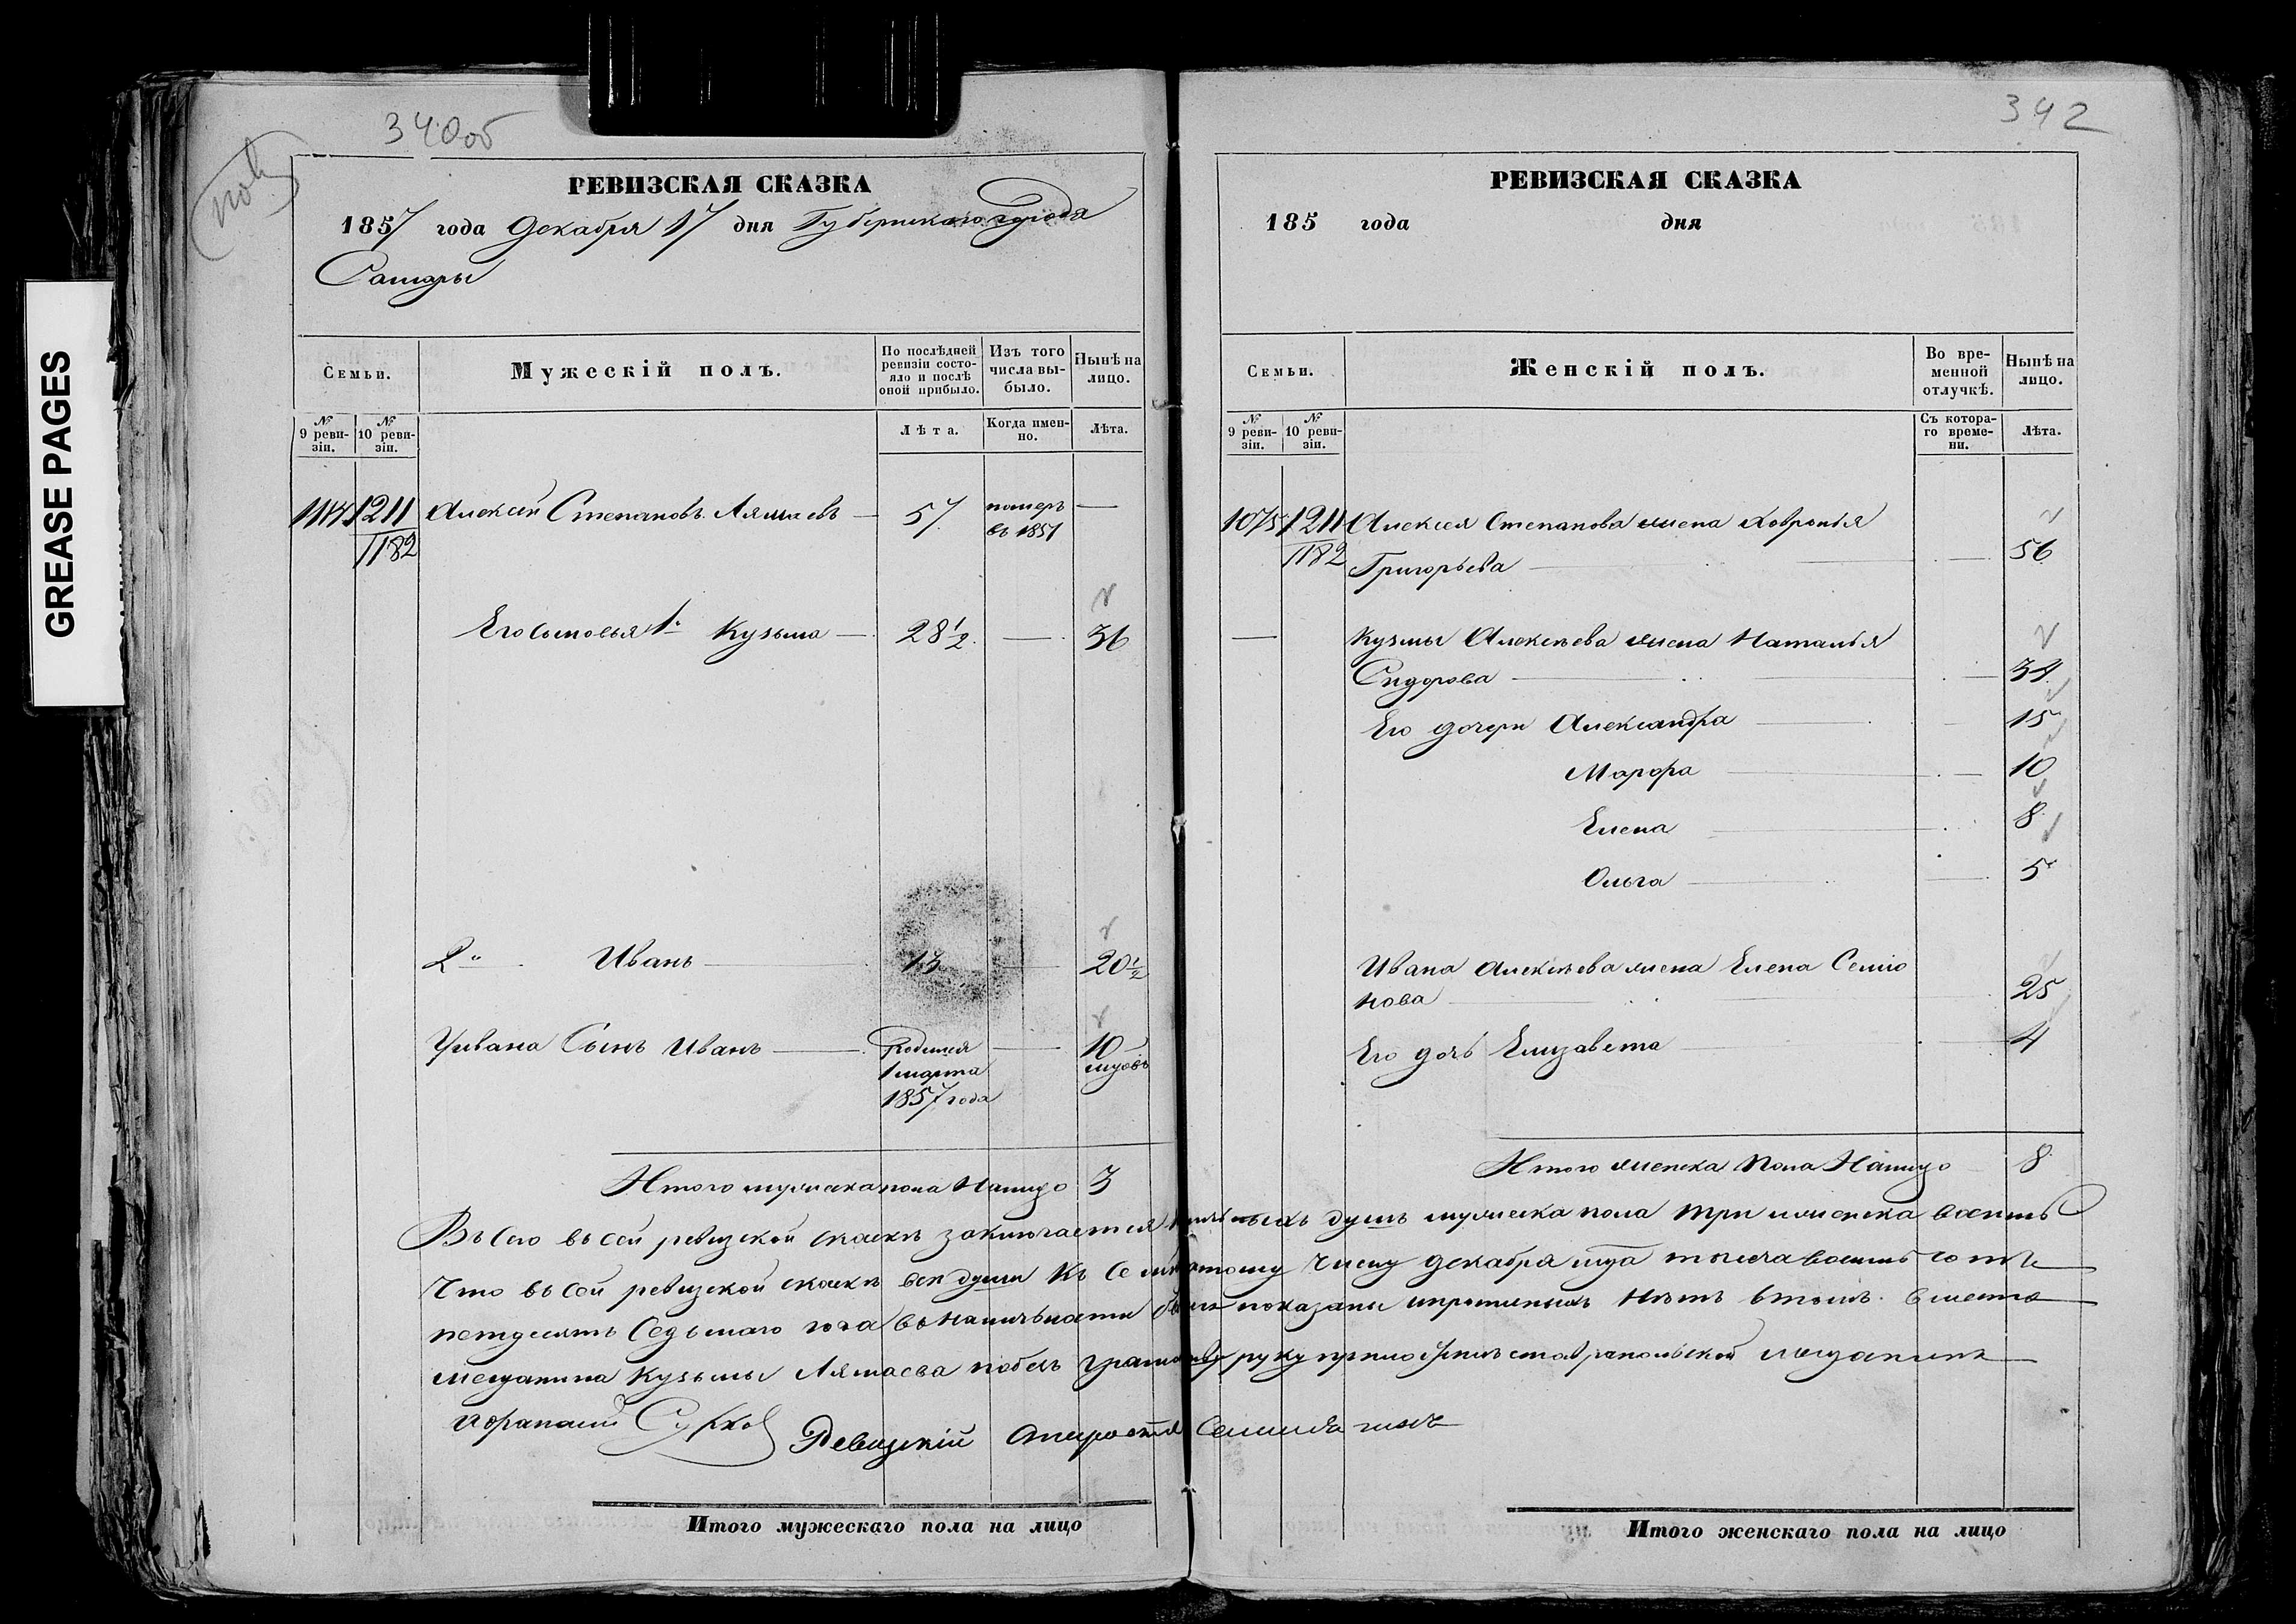 GREASE PAGES
340об
РЕВИЗСКАЯ СКАЗКА
1857 года Декабря 17 дня Губернскаго города
Самары
Семьи.
Мужескій полъ.
По послѣдней ревизіи состояло и послѣ оной прибыло.
Изъ того числа выбыло.
Нынѣ на лицо.
№ 9 ревизіи.
№ 10 ревизіи.
Лѣта.
Когда именно.
Лѣта.
1211 Алексей Степановъ Лямаевъ — 57 померъ —
1182 въ 1851
Его сыновья 1й Кузьма — 28 1/2 — 36
2й Иванъ 13 — 20 1/2
У Ивана Сынъ Иванъ — Родился — 10
1 марта
1857 года
Итого мужеска пола Налицо 3
342
РЕВИЗСКАЯ СКАЗКА
185 года дня
Семьи.
Женскій полъ.
Во временной отлучкѣ.
Нынѣ на лицо.
№ 9 ревизіи.
№ 10 ревизіи.
Съ котораго времени.
Лѣта.
1075 1211 Алексея Степанова жена Хавронья
1182 Григорьева — 56
— Кузмы Алексѣева жена Наталья
Сидорова — 34
Его дочери Александра — 15
Марфа — 10
Елена — 8
Ольга — 5
Ивана Алексѣева жена Елена Семіо
нова — 25
Его дочь Елизавета — 4
Итого женска Пола Налицо 8
Въ сей ревизской скаскѣ заключается душъ мужеска пола три и женска восемь
Что въ сей ревизской скаскѣ все души къ Семнатому числу декабря мца тысяча восемь сотъ
петдесятъ Седьмаго года въ наличности показаны и прописныхъ нѣтъ втомъ вместо
мещанина Кузьмы Лямаева руку приложилъ ставропольской мещанинъ
Сурков
Ревизскій
Итого мужескаго пола на лицо
Итого женскаго пола на лицо